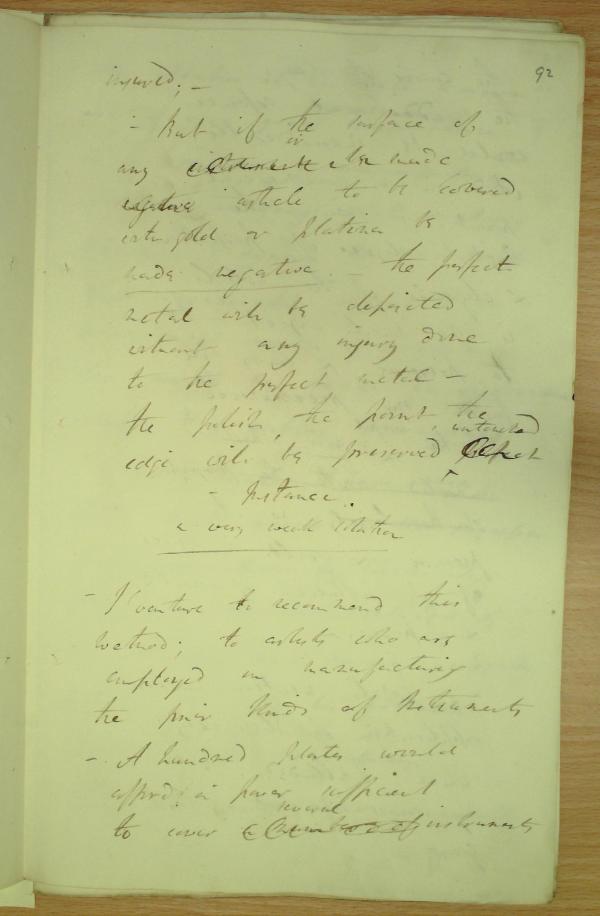 92
injured; -
- But if the surface of
any or the made
negative article to be covered
with gold or platina be
made negative - the perfect
metal will be deposited
without any injury done
to the perfect metal -
the polish, the point, the
edge will be preserved untouched
- Instance.
a very weak solution
- I venture to recommend this
method; to artists who are
employed in manufacturing
the finer kinds of Instruments
- A hundred plates would
afford a power sufficient
to cover several instruments